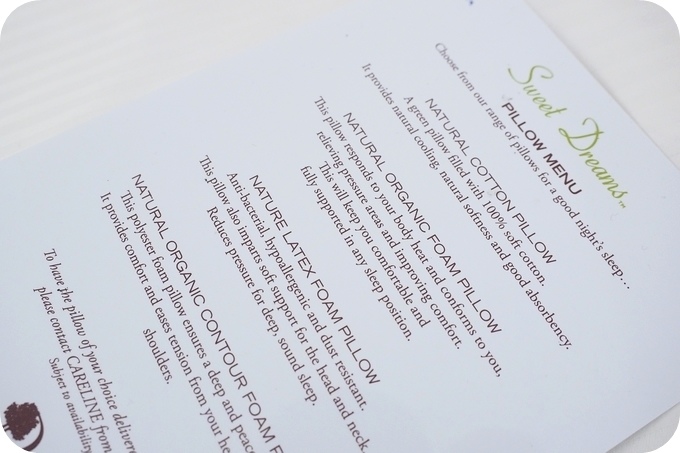 Sweet Dreams™
PILLOW MENU
Choose from our range of pillows for a good night's sleep...
NATURAL COTTON PILLOW
A green pillow filled with 100% soft cotton.
It provides natural cooling, natural softness and good absorbency.
NATURAL ORGANIC FOAM PILLOW
This pillow responds to your body heat and conforms to you,
relieving pressure areas and improving comfort.
This will keep you comfortable and
fully supported in any sleep position.
NATURE LATEX FOAM PILLOW
Anti-bacterial hypoallergenic and dust resistant.
This pillow also imparts soft support for the head and neck.
Reduces pressure for deep, sound sleep.
NATURAL ORGANIC CONTOUR FOAM
This polyester foam pillow ensures a deep and
It provides comfort and eases tension from your
shoulders.
To have the pillow of your choice
please contact CARELINE from
Subject to availability